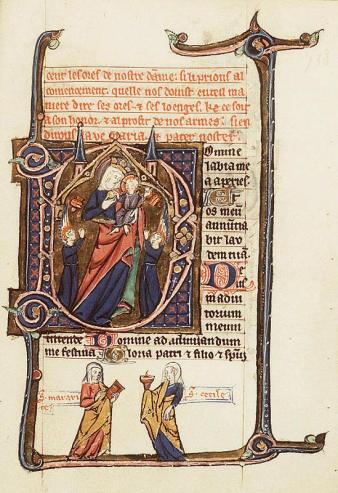 ceur les ores de nostre dame: si li prions al
comencement. quelle nos doinst en tel ma
niere dire ses ores ⁊ ses loenges. ke ce soit
a son honor. ⁊ al profit de nos armes. si en
dirons aue maria. ⁊ pater noster.
Domine
labia me
a aperies.
Et
os meū
annūtia
bit lau
dem tuā.
De
us in
adiu
torium
meum
intende Domine ad adiuuandum
me festina Gloria patri ⁊ filio ⁊ spūi
S. margari
te
S. cecile